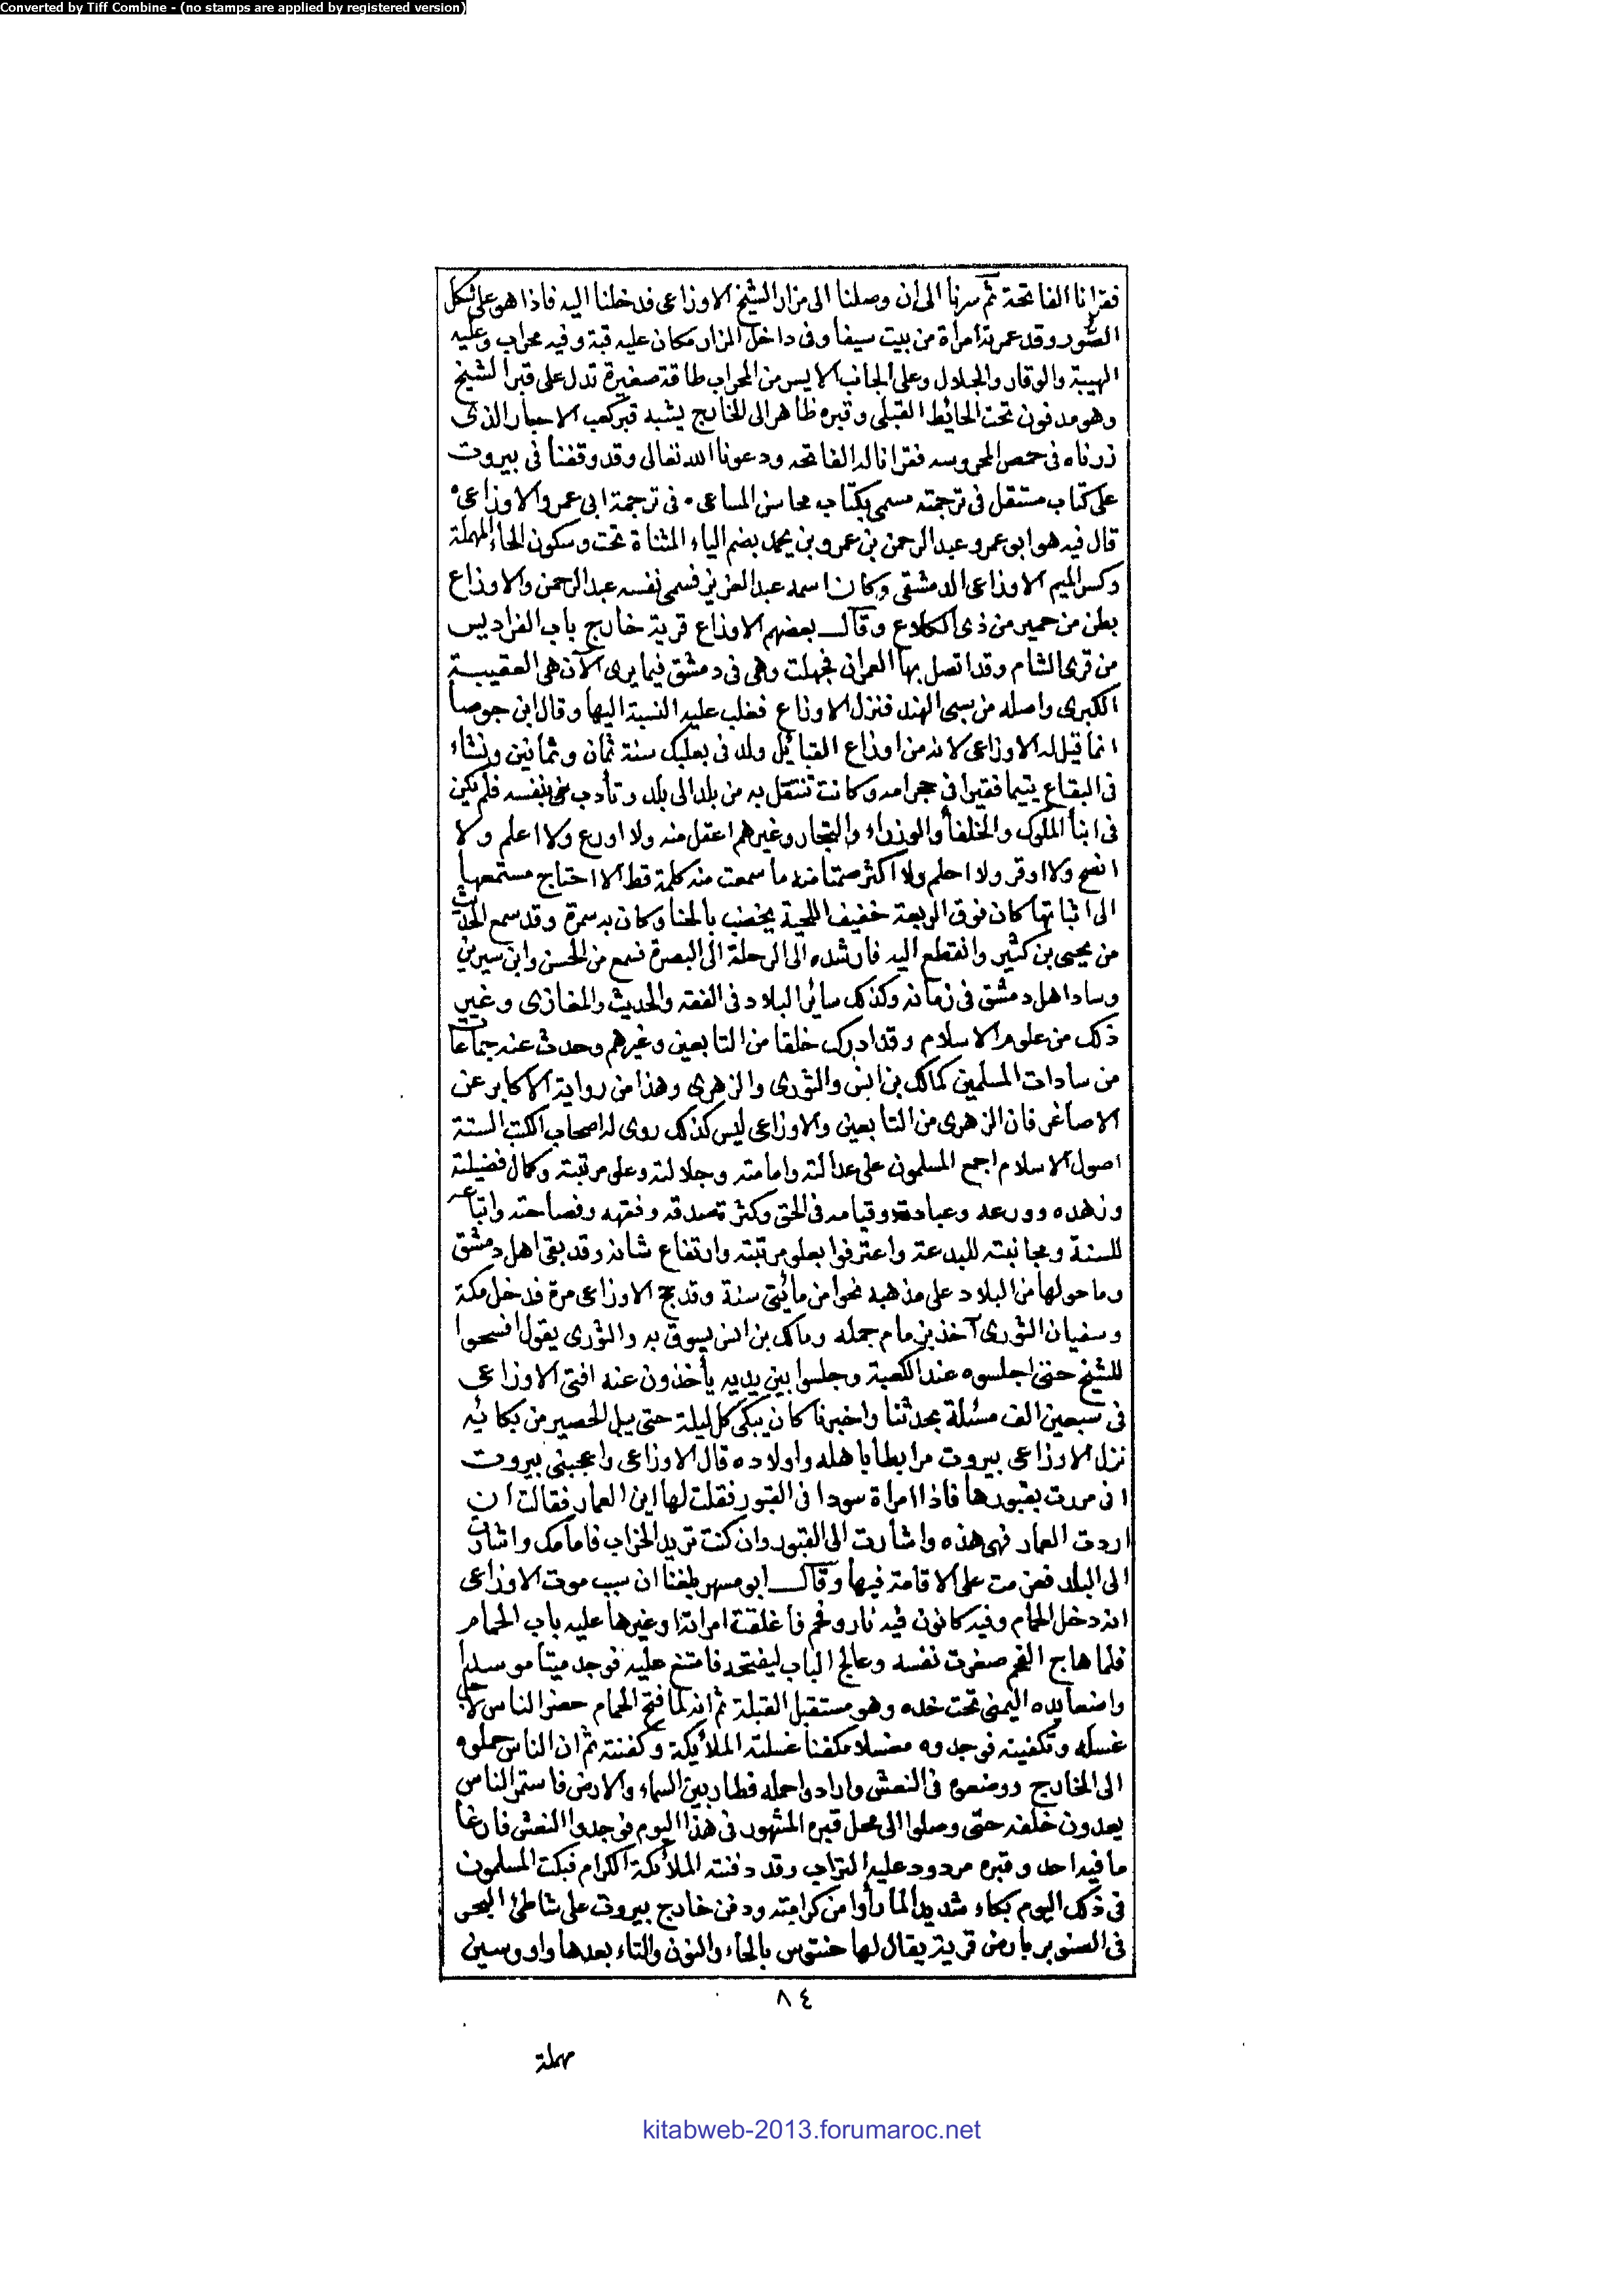 Converted by Tiff Combine - (no stamps are applied by registered version)
فقرانا الفاتحة ثم سرنا الى ان وصلنا الى مزار الشيخ الاوزاعى فدخلنا اليه فاذا هو على شكل
الصور وقد عمرته امرأة من بيت سيفا وفى داخل المزار مكان عليه قبة وفيه محراب وعليه
الهيبة والوقار والجلال وعلى الجانب الايسر من المحراب طاقة صغيرة تدل على قبر الشيخ
وهو مدفون تحت الحائط القبلى وقبره ظاهر الى الخارج يشبه قبر كعب الاحبار الذى
زرناه فى حمص المحروسه فقرانا له الفاتحه ودعونا الله تعالى وقد وقفنا فى بيروت
على كتاب مستقل فى ترجمته مسمى بكتاب محاسن المساعى . فى ترجمة ابى عمرو الاوزاعى .
قال فيه هو ابو عمرو عبد الرحمن بن عمرو بن يحمد بضم الياء المثناة تحت وسكون الحاء المهملة
وكسر الميم الاوزاعى الدمشقى وكان اسمه عبد العزيز فسمى نفسه عبد الرحمن والاوزاع
بطن من حمير من ذى الكلاع وقال بعضهم الاوزاع قرية خارج باب الفراديس
من قرى الشام وقد اتصل بها العمران فجهلت وهى فى دمشق فيما يرى الآن هى العقيبة
الكبرى واصله من سبى الهند فنزل الاوزاع فغلب عليه النسبة اليها وقال ابن جوصا
انما قيل له الاوزاعى لانه من اوزاع القبائل ولد فى بعلبك سنة ثمان وثمانين ونشاء
فى البقاع يتيما فقيرا فى حجر امه وكانت تنتقل به من بلد الى بلد وتأدب بنفسه فلم يكن
فى ابنأ الملوك والخلفأ والوزراء والتجار وغيرهم اعقل منه ولا اورع ولا اعلم ولا
افصح ولا اوقر ولا احلم ولا اكثر صمتا منه ما سمعت منه كلمة قط الا احتاج مستمعها
الى اثباتها كان فوق الربعة خفيف اللحية يخضب بالحنا وكان به سمرة وقد سمع الحديث
من يحيى بن كثير وانقطع اليه فارشده الى الرحلة الى البصرة فسمع من الحسن وابن سيرين
وساد اهل دمشق فى زمانه وكذلك سائر البلاد فى الفقه والحديث والمغازى وغير
ذلك من علوم الاسلام وقد ادرك خلقا من التابعين وغيرهم وحدث عنه جماعات
من سادات المسلمين كمالك بن انس والثورى والزهرى وهذا من رواية الاكابر عن
الاصاغر فان الزهرى من التابعين والاوزاعى ليس كذلك روى له اصحاب الكتب الستة
اصول الاسلام اجمع المسلمون على عدالته وامامته وجلالته وعلى مرتبته وكمال فضيلته
وزهده وورعه وعبادته وقيامه فى الحق وكثر تصدقه وفقهه وفصاحته واتباعه
للسنة ومجانبته للبدعة واعترفوا بعلو مرتبته وارتفاع شانه وقد بقى اهل دمشق
وما حولها من البلاد على مذهبه نحوا من مائتى سنة وقد حج الاوزاعى مرة فدخل مكة
وسفيان الثورى آخذ بزمام جمله ومالك بن انس يسوق به والثورى يقول افسحوا
للشيخ حتى اجلسوه عند الكعبة وجلسوا بين يديه يأخذون عنه افتى الاوزاعى
فى سبعين الف مسئلة بحدثنا واخبرنا كان يبكى كل ليلة حتى يبل الحصير من بكائه
نزل الاوزاعى بيروت مرابطا باهله واولاده قال الاوزاعى واعجبنى بيروت
انى مررت بقبورها فاذا امراة سودا فى القبور فقلت لها اين العمار فقالت ان
اردت العمار فهى هذه واشارت الى القبور وان كنت تريد الخراب فامامك واشارت
الى البلد فعزمت على الاقامة فيها وقال ابو مسهر بلغنا ان سبب موت الاوزاعى
انه دخل الحمام وفيه كانون فيه نار وفحم فاغلقت امراته او غيرها عليه باب الحمام
فلما هاج الفحم صغرت نفسه وعالج الباب ليفتحه فامتنع عليه فوجد ميتا موسدا
واضعا يده اليمنى تحت خده وهو مستقبل القبلة ثم انه لما فتح الحمام حضر الناس لاجل
غسله وتكفينه فوجدوه مغسلا مكفنا غسلته الملائكة وكفنته ثم ان الناس حملوه
الى الخارج ووضعوه فى النعش وارادوا حمله فطار بين السماء والارض فاستمر الناس
يعدون خلفه حتى وصلوا الى محل قبره المشهور فى هذا اليوم فوجدوا النعش فارغا
ما فيه احد وقبره مردود عليه التراب وقد دفنته الملائكة الكرام فبكت المسلمون
فى ذلك اليوم بكاء شديدا لما رأوا من كرامته ودفن خارج بيروت على شاطئ البحر
فى الصنوبر بارض قرية يقال لها حنتوس بالحاء والنون والتاء بعدها واو وسين
٨٤
مهملة
kitabweb-2013.forumaroc.net